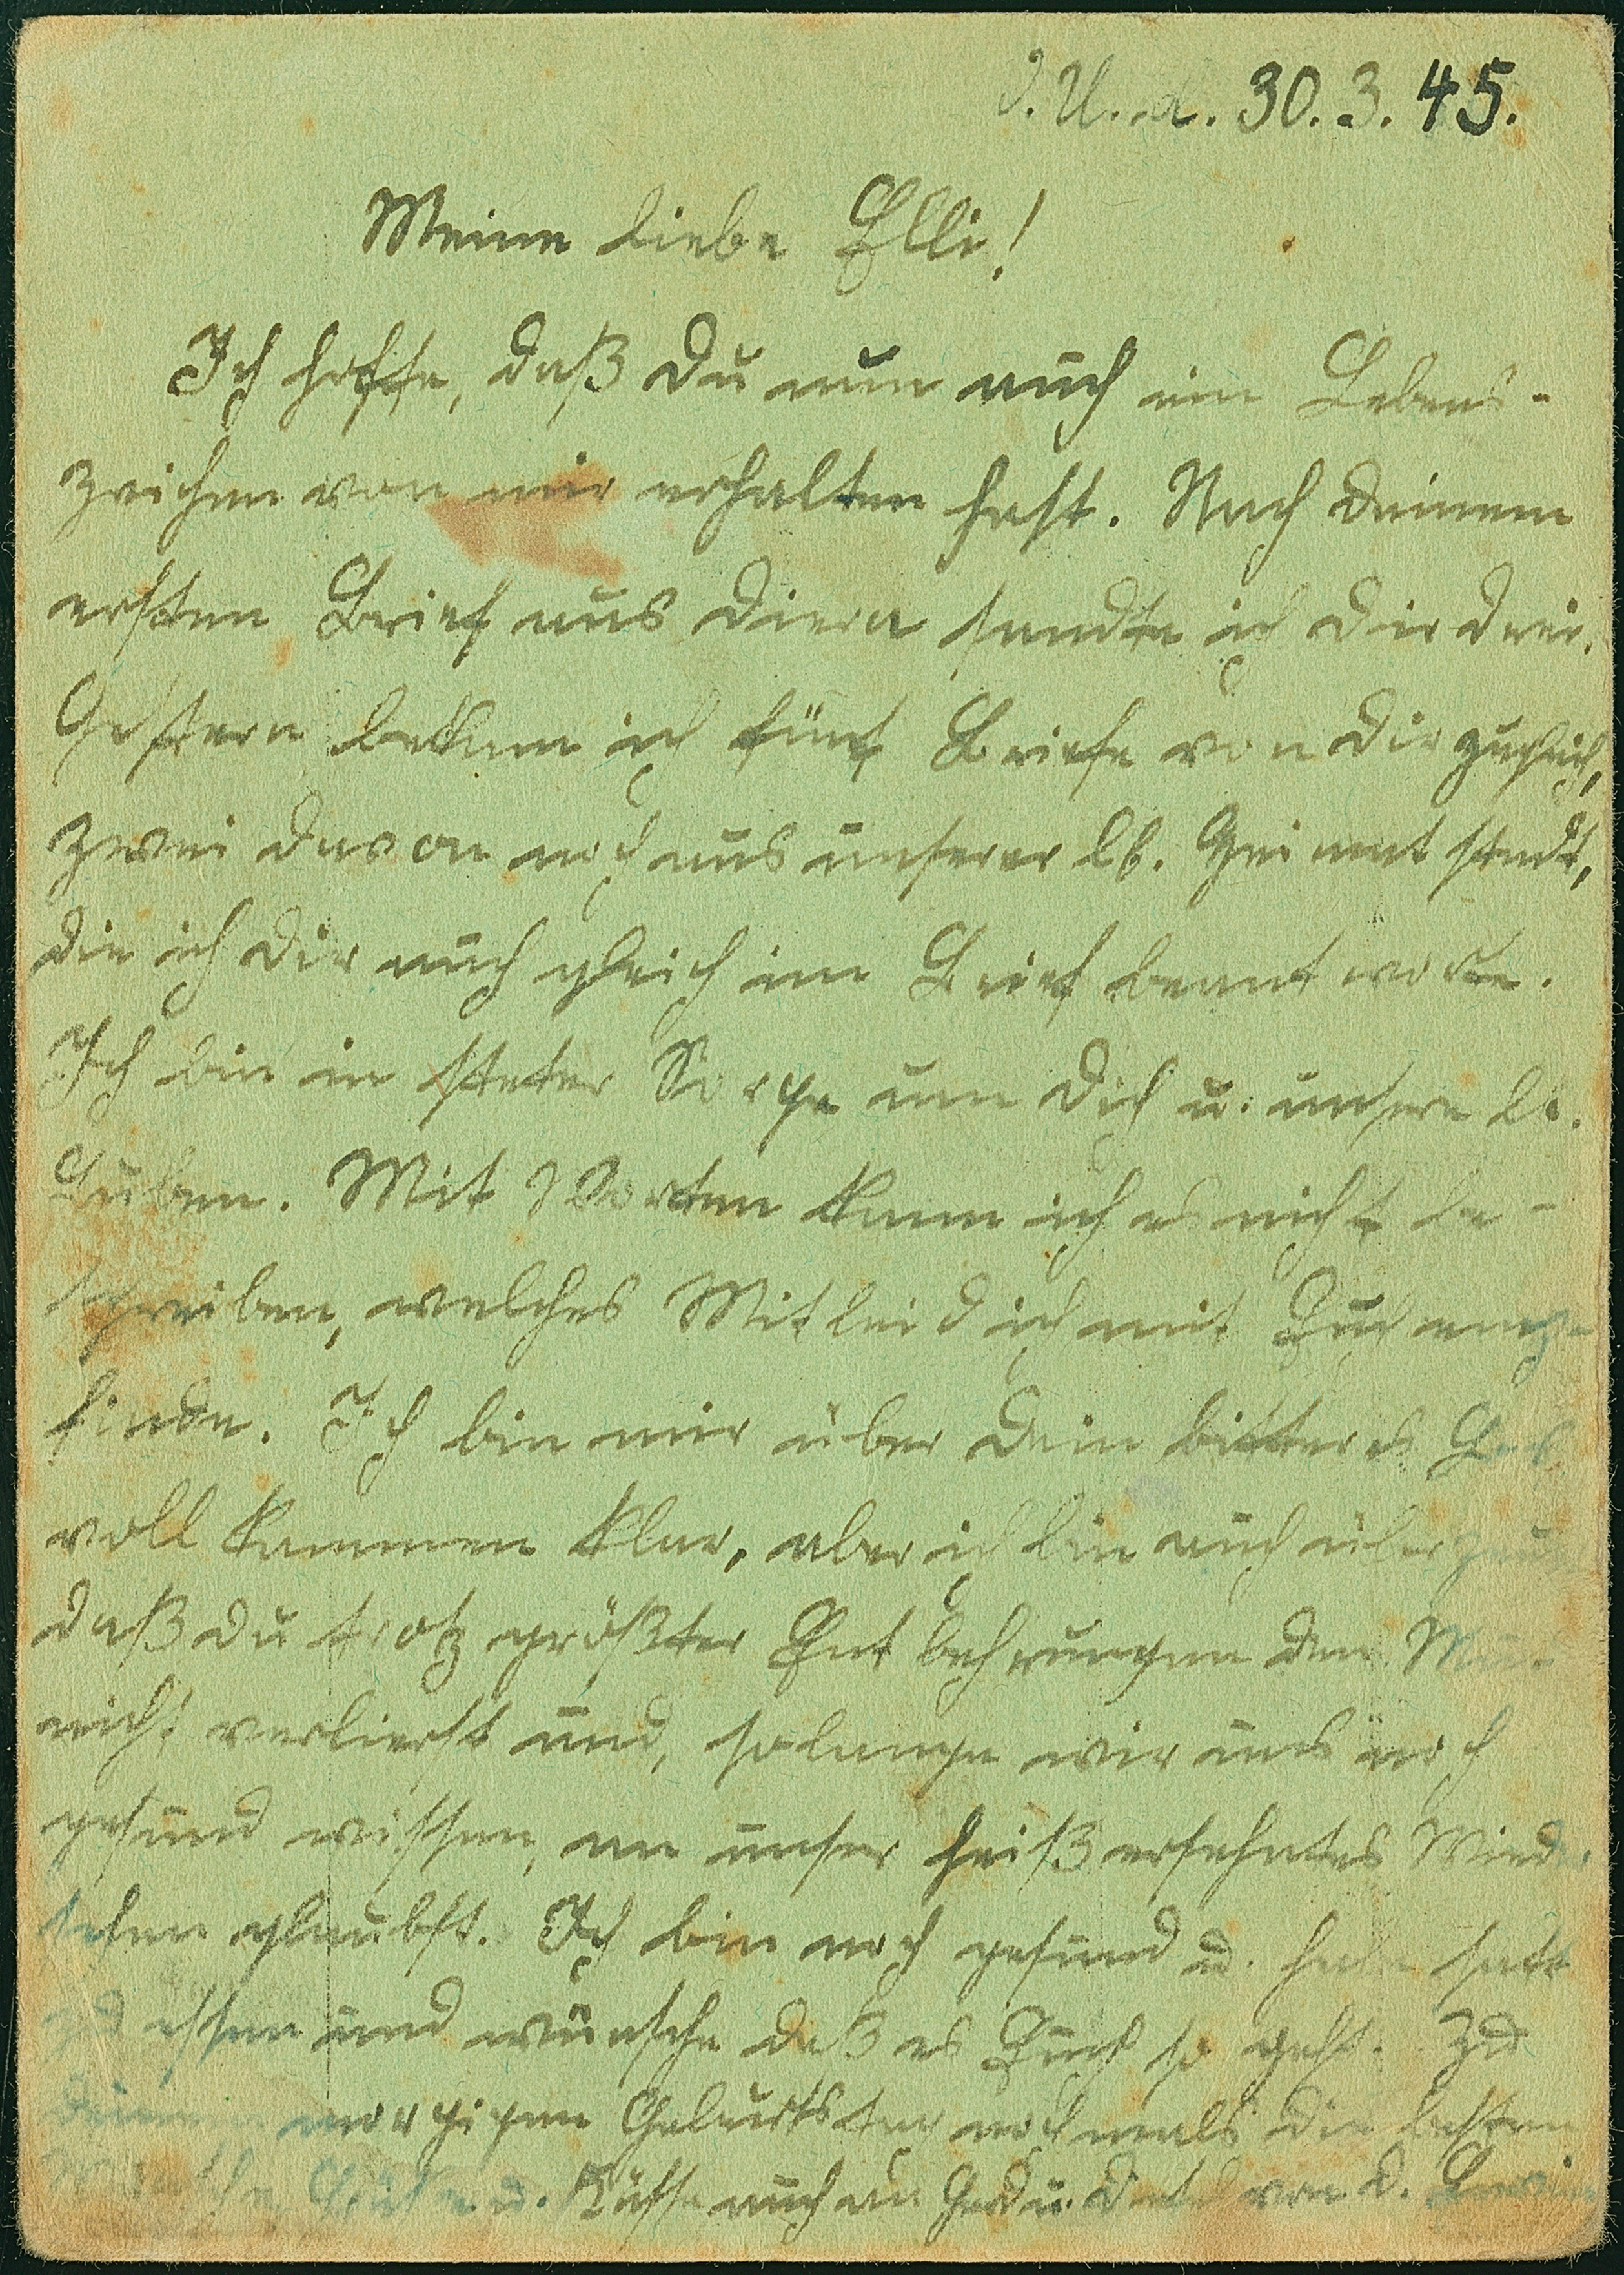 O.U. d. 30.3.45.
Meine liebe Elli!
Ich hoffe, daß Du nun auch ein Lebens-
zeichen von mir erhalten hast. Nach Deinem
ersten Brief aus Diera sandte ich Dir drei.
Gestern bekam ich fünf Briefe von Dir zugleich,
zwei davon noch aus unserer lb. Heimatstadt,
die ich Dir auch gleich im Brief beantworte.
Ich bin in steter Sorge um Dich u. unsere lb.
Buben. Mit Worten kann ich es nicht be-
schreiben, welches Mitleid ich mit Euch emp-
finde. Ich bin mir über Dein bitteres
vollkommen klar, aber ich bin auch überzeugt
daß Du trotz größter Entbehrungen den Mut
nicht verlierst und, solange wir uns noch
gesund wissen, an unser heiß ersehntes Wieder
sehen glaubst. Ich bin noch gesund u. habe satt
zu essen und wünsche daß es Euch so geht. Zu
Deinem morgigen Geburtstag nochmals die besten
Wünsche u. Küsse auch an u. von D.